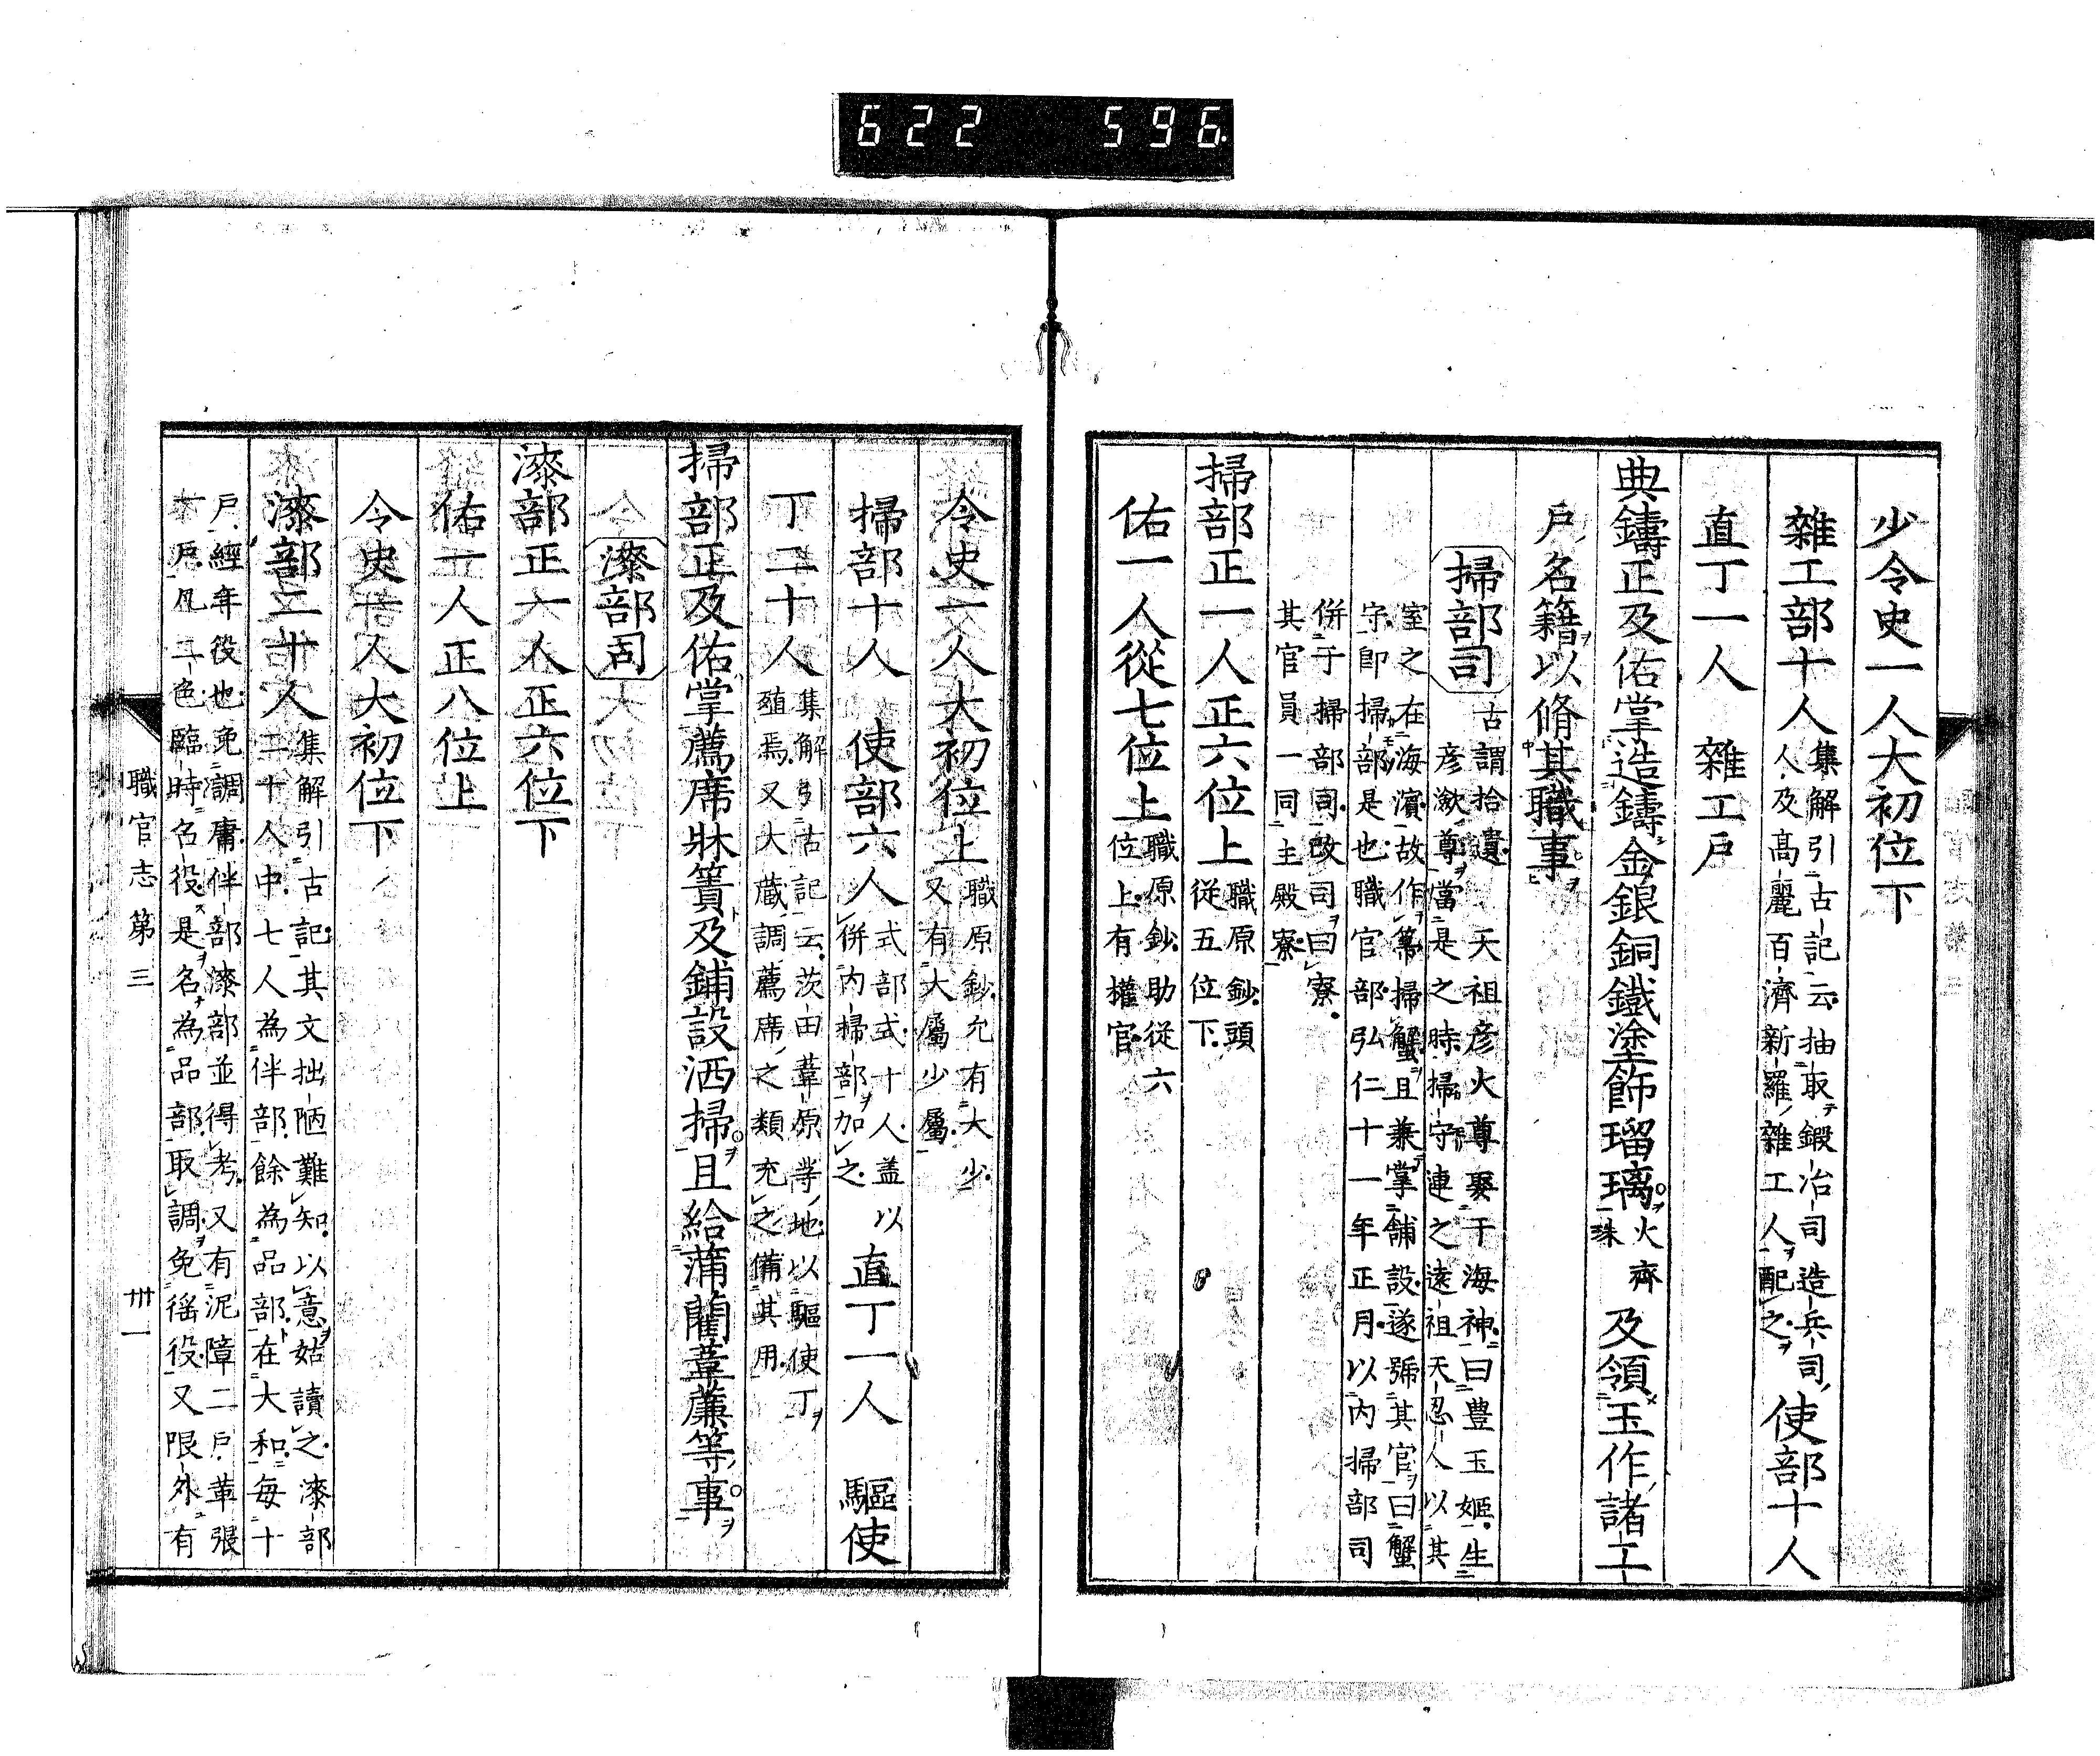 622 596
少令史一人大初位下
雜工部十人
集解引古記云抽取鍛冶司造兵司
人及高麗百濟新羅雜工人配之
使部十人
直丁一人 雜工戶
典鑄正及佑掌造鑄金銀銅鐵塗飾瑠璃
火齊
珠
及領玉作諸工
戶名籍以脩其職事
掃部司
古謂拾遺 天祖彦火尊娶于海神曰豊玉姬生
彦瀲尊當是之時掃守連之遠祖天忍人以其
室之在海濱故作箒掃蟹且兼掌舖設遂號其官曰蟹
守即掃部是也職官部弘仁十一年正月以内掃部司
併于掃部司改司曰寮
其官員一同主殿寮
掃部正一人正六位上
職原鈔頭
従五位下
佑一人從七位上
職原鈔助従六
位上有權官
令史一人大初位上
職原鈔允有大少
又有大屬少屬
掃部十人 使部六人
式部式十人盖以
併内掃部加之
直丁一人 驅使
丁二十人
集解引古記云茨田葦原等地以驅使丁
殖焉又大蔵調薦席之類充之備其用
掃部正及佑掌薦席牀簀及鋪設洒掃且給蒲藺葦薕等事
漆部司
漆部正一人正六位下
佑一人正八位上
令史一人大初位下
漆部二十人
集解引古記其文拙陋難知以意姑讀之漆部
二十人中七人為伴部餘為品部在大和每十
戶經年役也免調庸伴部漆部並得考又有泥障二戶革張
一戶凡二色臨時召役是名為品部取調免徭役又限外有
職官志第三 卅一